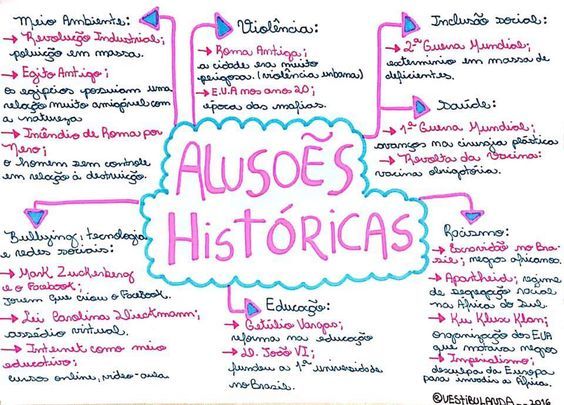 Meio Ambiente:
→ Revolução Industrial;
poluição em massa.
→ Egito Antigo;
os egípcios possuíam uma
relação muito amigável com
a natureza
→ Incêndio de Roma por
Nero;
o homem sem controle
em relação à destruição.
Violência:
→ Roma Antiga;
a cidade era muito
perigosa. (violência urbana)
→ E.U.A nos anos 20;
época das máfias.
Inclusão social:
→ 2ª Guerra Mundial;
extermínio em massa de
deficientes.
Saúde:
→ 1ª Guerra Mundial;
avanços na cirurgia plástica
→ Revolta da Vacina:
vacina obrigatória.
ALUSOẼS
HISTÓRICAS
Bullying, tecnologia
e redes sociais:
→ Mark Zuckenberg
e o Facebook;
jovem que criou o Facebook.
→ Lei Carolina Dieckmann;
assédio virtual.
→ Internet como meio
educativo;
cursos online, video-aula
Educação:
→ Getúlio Vargas;
reforma na educação
→ D. João VI;
fundou a 1ª universidade
no Brasil.
Racismo:
→ Escravidão no Bra-
sil; negros africanos.
→ Apartheid; regime
de segregação racial
na África do Sul
→ Ku Klux Klan;
organização dos EUA
que matava negros
→ Imperialismo;
desculpa da Europa
para invadir a África
@VESTIBULANDA__2016